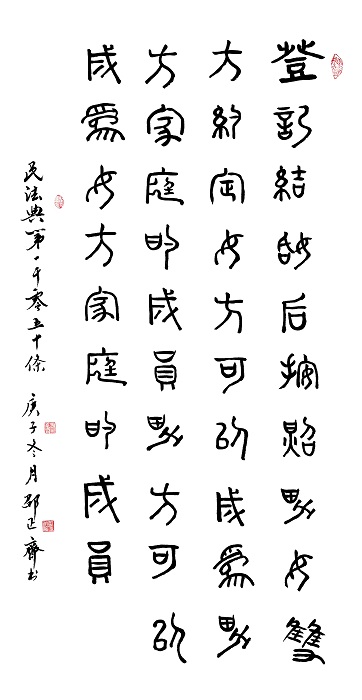 登記結婚后按照男女雙
方約定女方可以成爲男
方家庭的成員男方可以
成爲女方家庭的成員
民法典第一千零五十條 庚子冬月邵正齊书